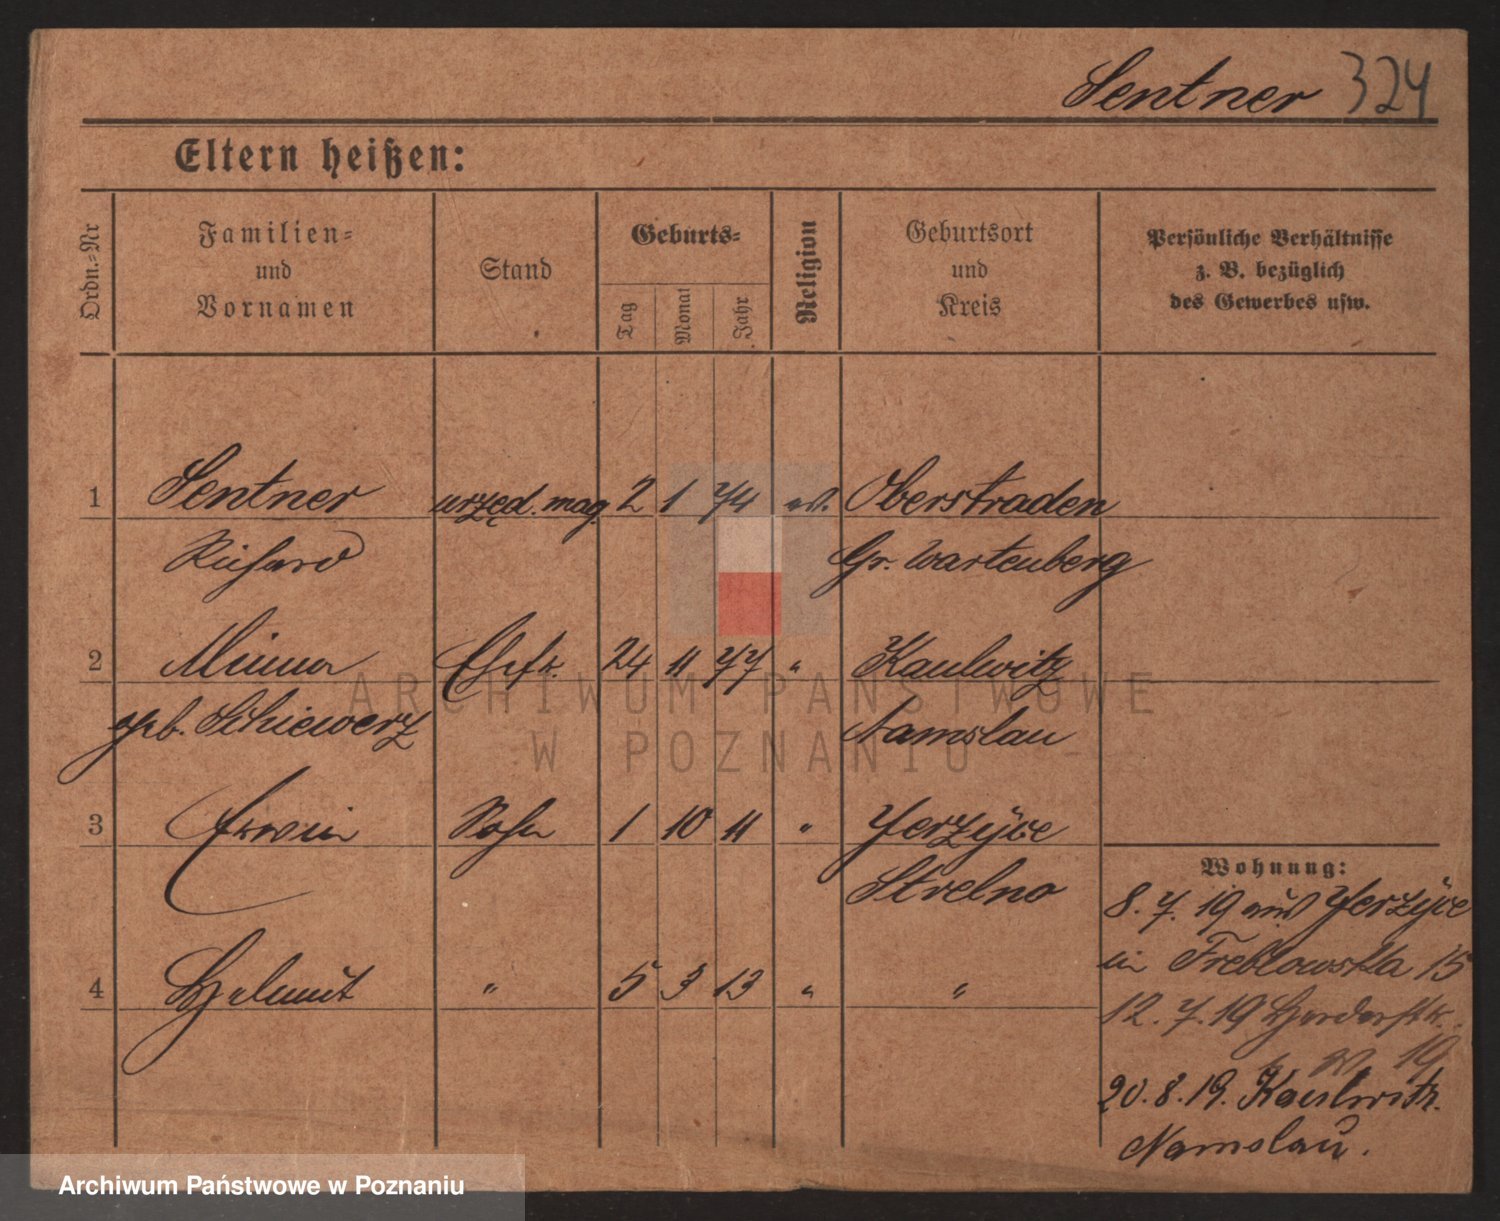 Sentner 324
Eltern heißen:
Ordn.-Nr
Familien-
und
Vornamen
Stand
Geburts-
Tag Monat Jahr
Religion
Geburtsort
und
Kreis
Persönliche Verhältnisse
z. B. bezüglich
des Gewerbes usw.
1 Sentner urzęd. mag. 2 1 74 ev. Oberstraden
Richard Gr. Wartenberg
2 Minna Ehefr. 24 11 77 " Kaulwitz
geb. Schiewerz Namslau
3 Erwin Sohn 1 10 11 " Jerzÿce
Strelno
4 Helmut " 5 3 13 " "
Wohnung:
8.7.19 aus Jerzÿce
in 15
12.7.19 Herderstr.
19
20.8.19. Kaulwitz
Namslau.
ARCHIWUM PAŃSTWOWE
W POZNANIU
Archiwum Państwowe w Poznaniu